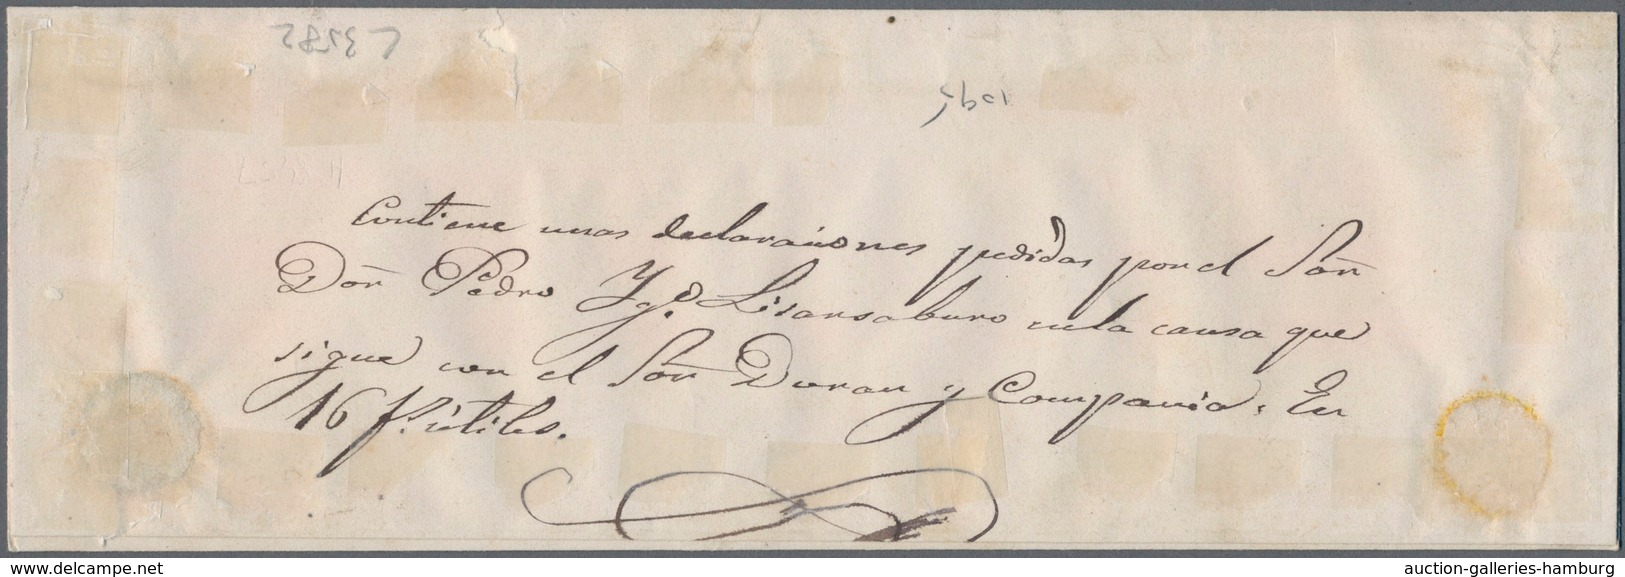 Contiene unas declaraciones pedidas por el Sõr
Dõn Pedro Ygº. Lisarsaburo en la causa que
sigue con el Sõr Duran y Compania. En
16 f.s utiles.
www.delcampe.net
auction-galleries-hamburg